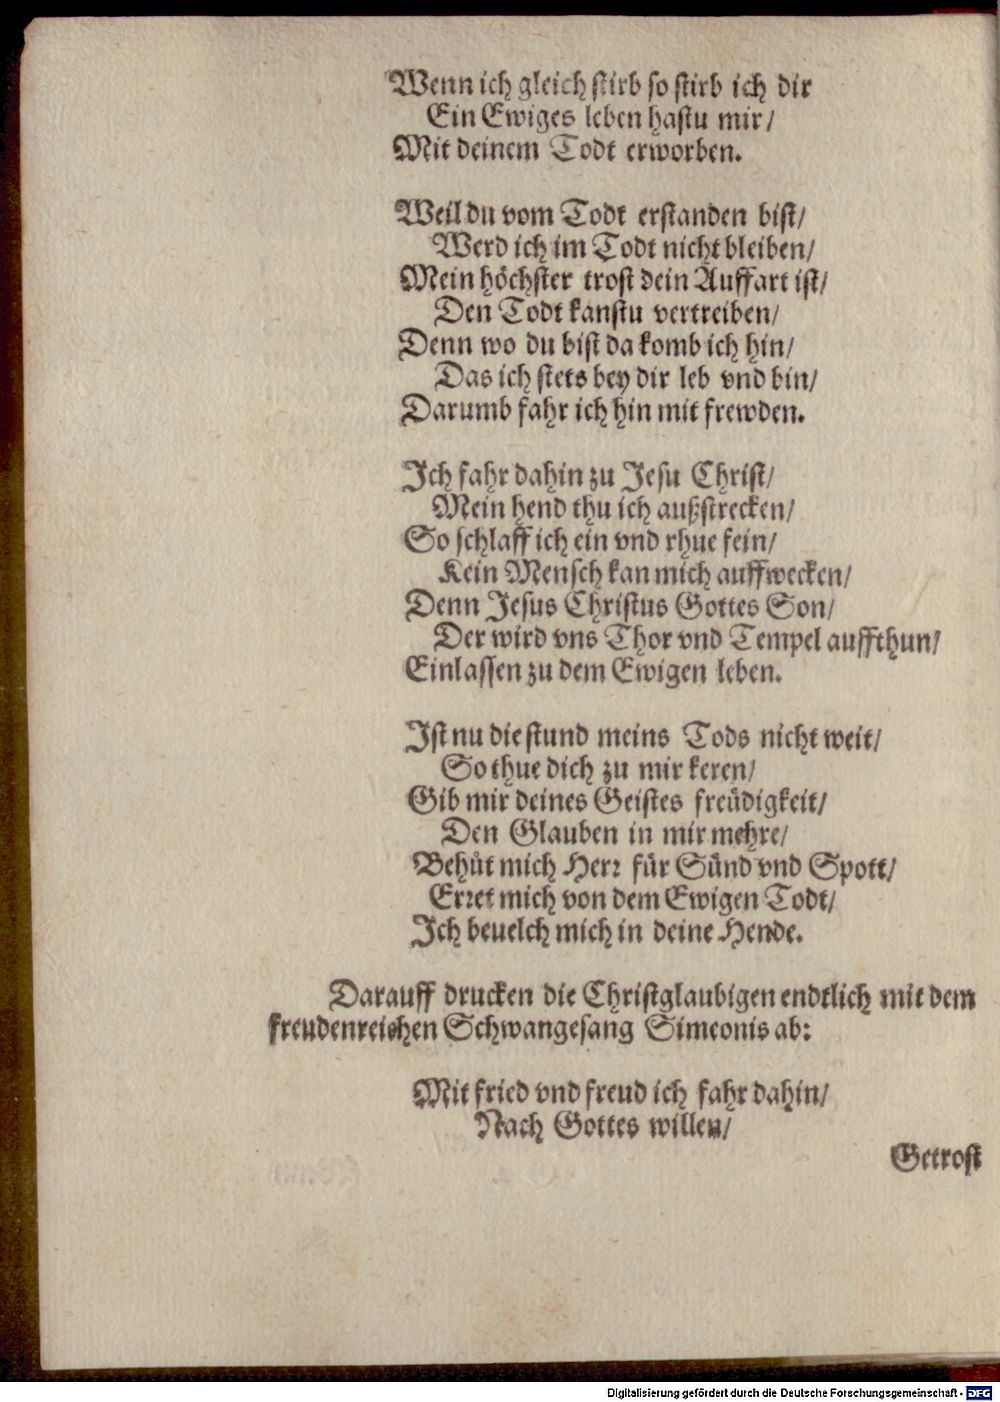 Wenn ich gleich stirb so stirb ich dir
Ein Ewiges leben hastu mir/
Mit deinem Todt erworben.
Weil du vom Todt erstanden bist/
Werd ich im Todt nicht bleiben/
Mein höchster trost dein Auffart ist/
Den Todt kanstu vertreiben/
Denn wo du bist da komb ich hin/
Das ich stets bey dir leb vnd bin/
Darumb fahr ich hin mit frewden.
Ich fahr dahin zu Jesu Christ/
Mein hend thu ich außstrecken/
So schlaff ich ein vnd rhue fein/
Kein Mensch kan mich auffwecken/
Denn Jesus Christus Gottes Son/
Der wird vns Thor vnd Tempel auffthun/
Einlassen zu dem Ewigen leben.
Ist nu die stund meins Tods nicht weit/
So thue dich zu mir keren/
Gib mir deines Geistes freüdigkeit/
Den Glauben in mir mehre/
Behüt mich Herr für Sünd vnd Spott/
Erret mich von dem Ewigen Todt/
Ich beuelch mich in deine Hende.
Darauff drucken die Christglaubigen endtlich mit dem
freudenreichen Schwangesang Simeonis ab:
Mit fried vnd freud ich fahr dahin/
Nach Gottes willen/
Getrost
Digitalisierung gefördert durch die Deutsche Forschungsgemeinschaft - DFG